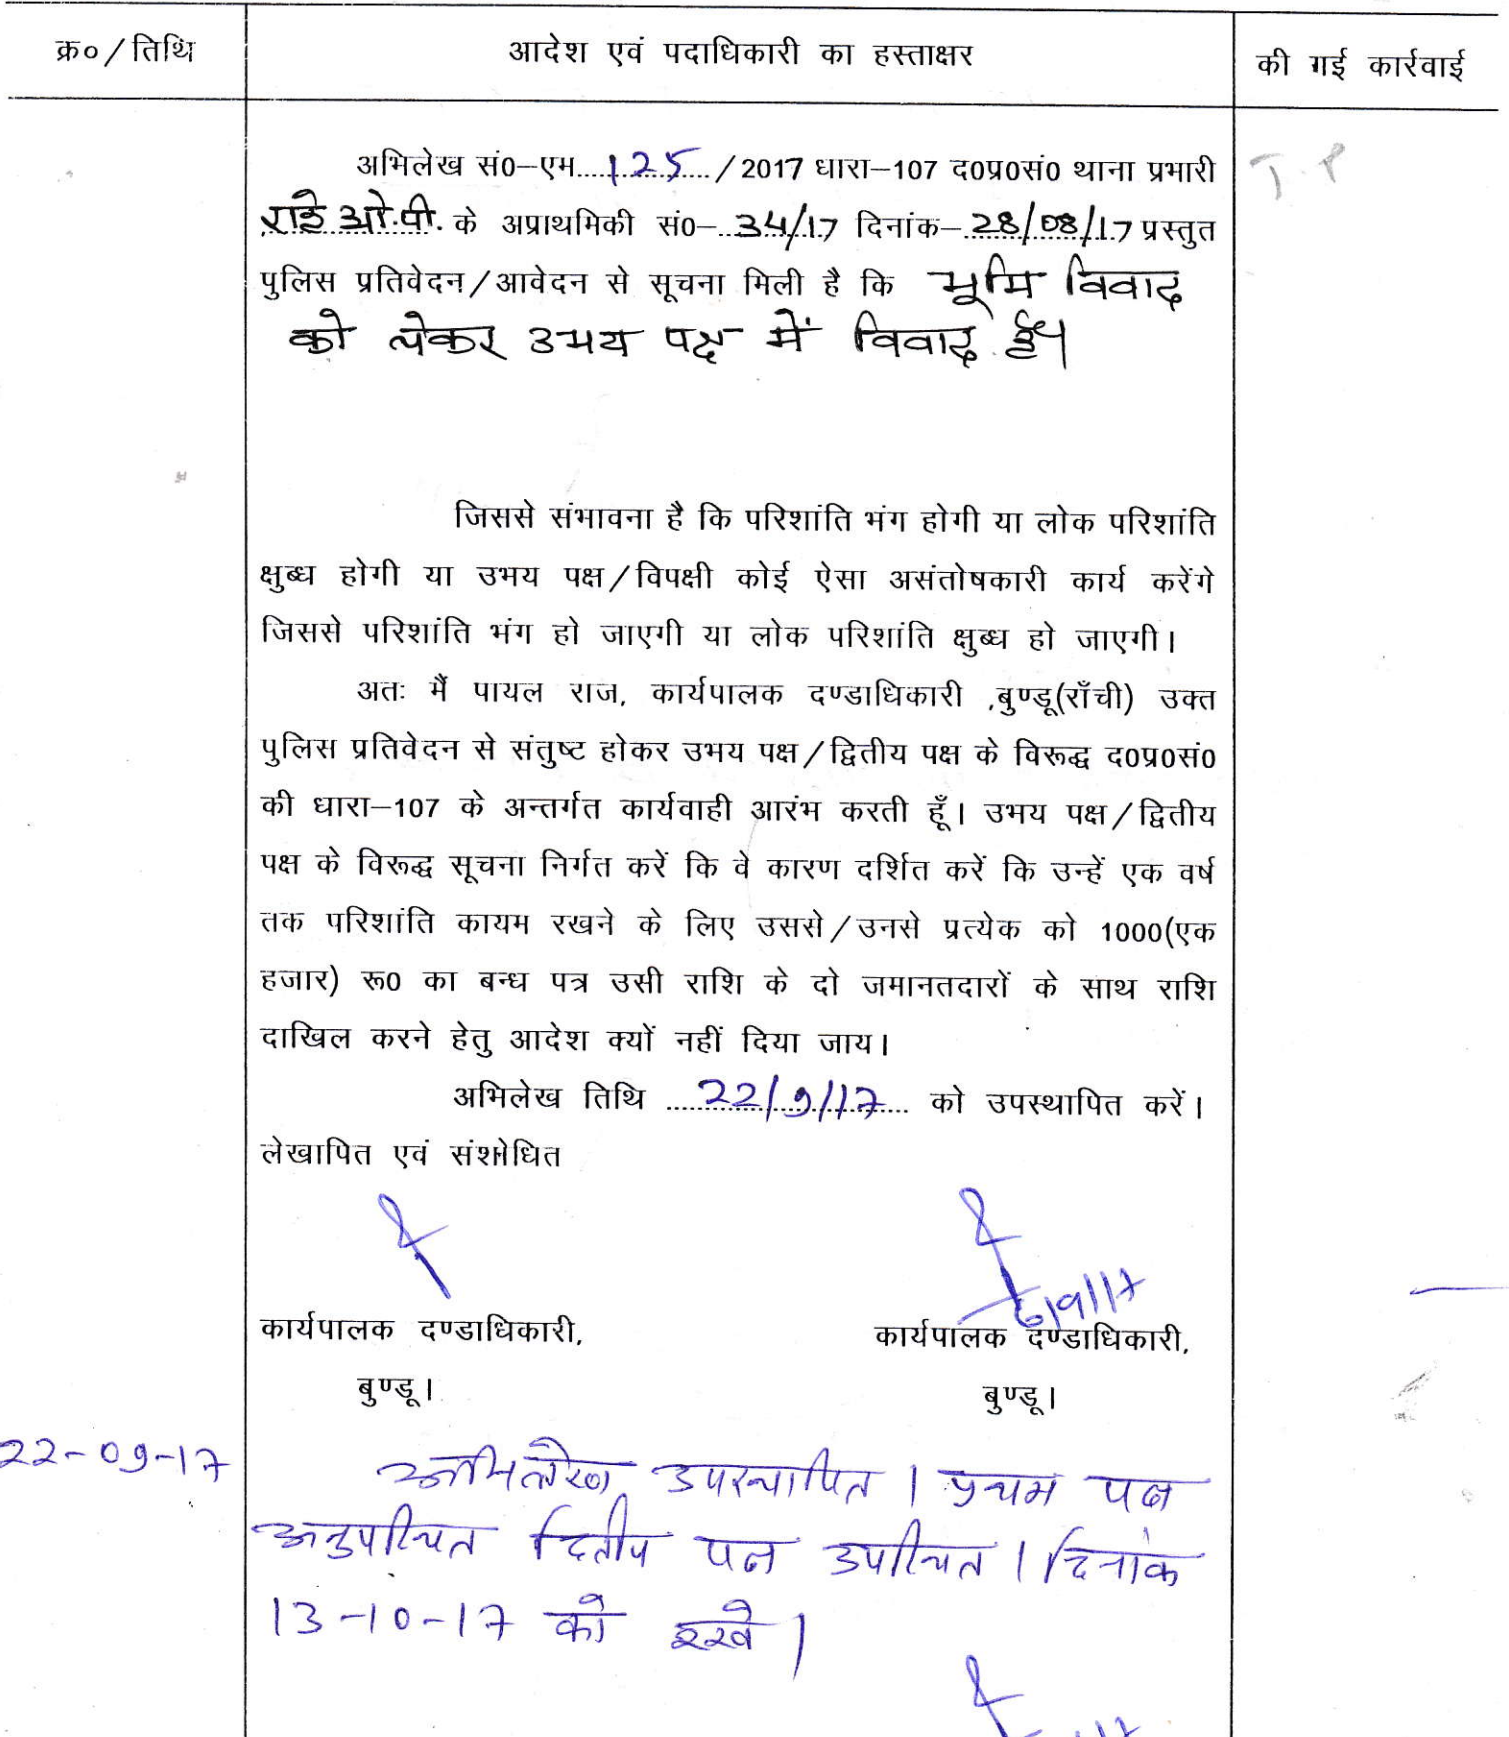 क्र०/तिथि
आदेश एवं पदाधिकारी का हस्ताक्षर
की गई कार्रवाई
अभिलेख सं0–एम....125..../2017 धारा–107 द0प्र0सं0 थाना प्रभारी
राहे ओ.पी. के अप्राथमिकी सं0–..34/17 दिनांक–..28/08/17 प्रस्तुत
पुलिस प्रतिवेदन/आवेदन से सूचना मिली है कि भूमि विवाद
को लेकर उभय पक्ष में विवाद है।
T.P
जिससे संभावना है कि परिशांति भंग होगी या लोक परिशांति
क्षुब्ध होगी या उभय पक्ष/विपक्षी कोई ऐसा असंतोषकारी कार्य करेंगे
जिससे परिशांति भंग हो जाएगी या लोक परिशांति क्षुब्ध हो जाएगी।
अतः मैं पायल राज, कार्यपालक दण्डाधिकारी ,बुण्डू(राँची) उक्त
पुलिस प्रतिवेदन से संतुष्ट होकर उभय पक्ष/द्वितीय पक्ष के विरूद्ध द0प्र0सं0
की धारा–107 के अन्तर्गत कार्यवाही आरंभ करती हूँ। उभय पक्ष/द्वितीय
पक्ष के विरूद्ध सूचना निर्गत करें कि वे कारण दर्शित करें कि उन्हें एक वर्ष
तक परिशांति कायम रखने के लिए उससे/उनसे प्रत्येक को 1000(एक
हजार) रू0 का बन्ध पत्र उसी राशि के दो जमानतदारों के साथ राशि
दाखिल करने हेतु आदेश क्यों नहीं दिया जाय।
अभिलेख तिथि ....22/9/17.... को उपस्थापित करें।
लेखापित एवं संशोधित
6/9/17
कार्यपालक दण्डाधिकारी, कार्यपालक दण्डाधिकारी,
बुण्डू। बुण्डू।
22-09-17 अभिलेख उपस्थापित। प्रथम पक्ष
अनुपस्थित द्वितीय पक्ष उपस्थित। दिनांक
13-10-17 को रखें।